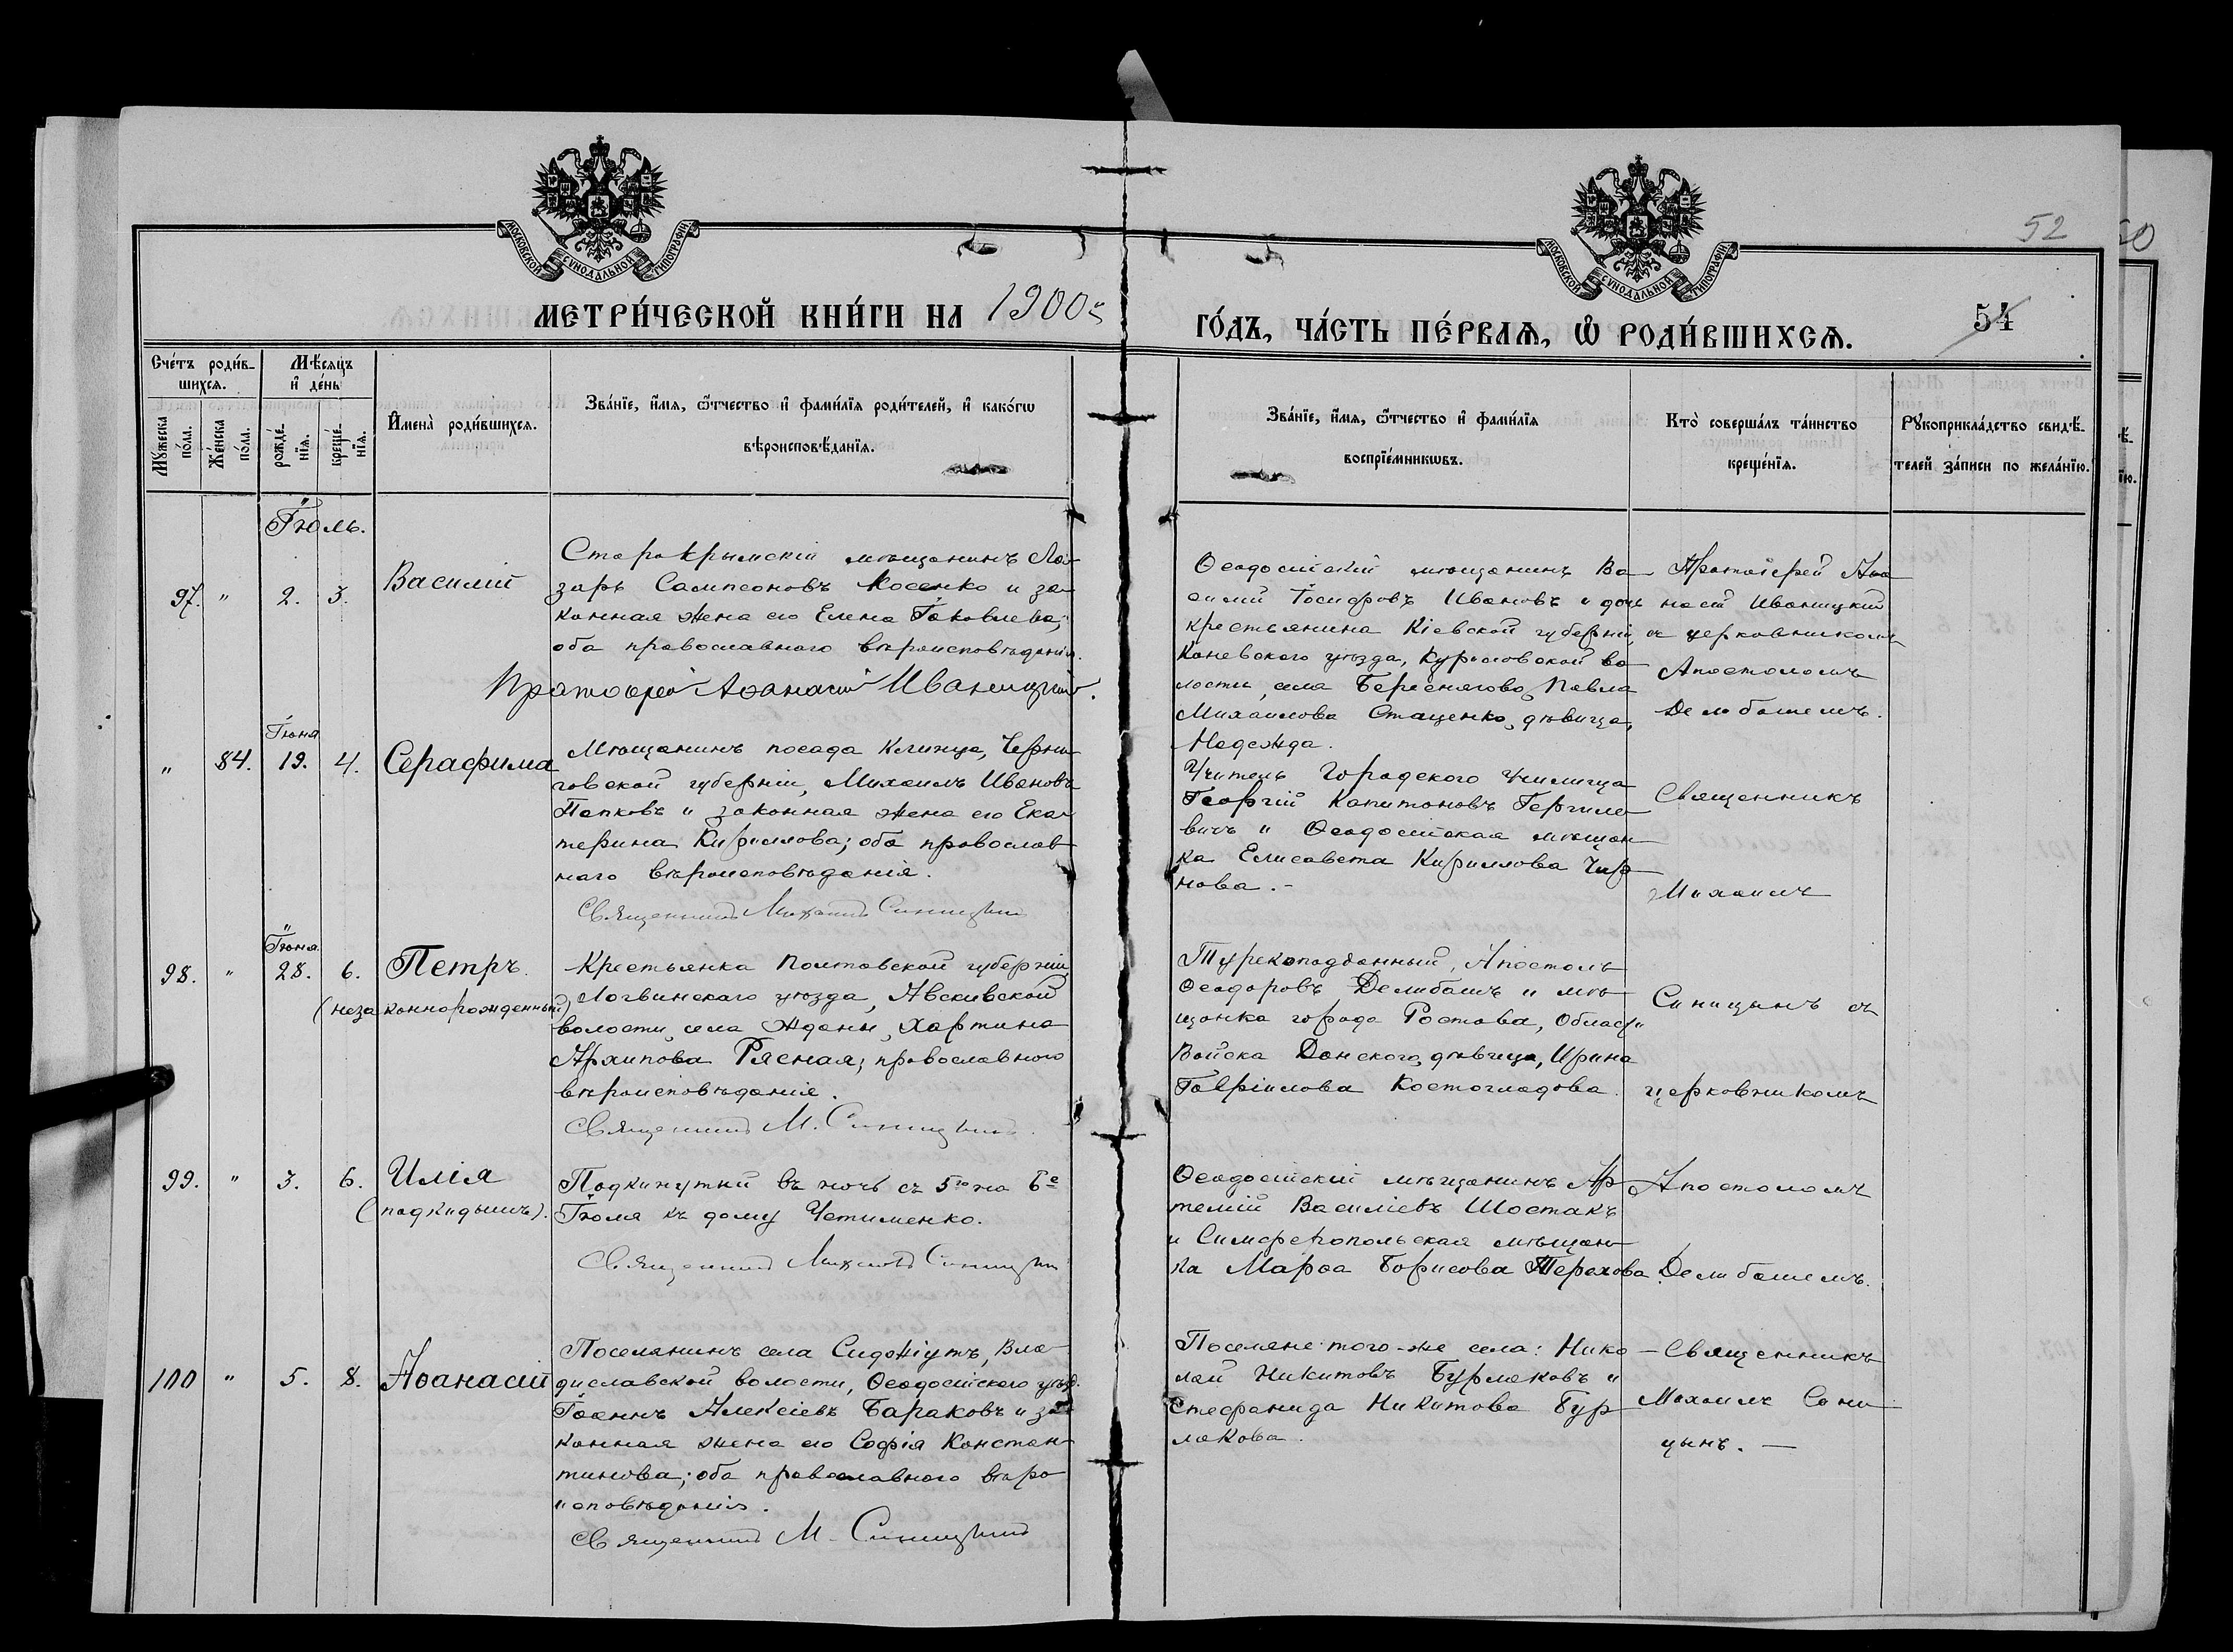 МОСКОВСКОЙ СѴНОДАЛЬНОЙ ТИПОГРАФІИ
МОСКОВСКОЙ СѴНОДАЛЬНОЙ ТИПОГРАФІИ
52
50
МЕТРИ́ЧЕСКОЙ КНИ́ГИ НА 1900й
ГО́ДЪ, ЧА́СТЬ ПЕ́РВАѦ, Ѡ РОДИ́ВШИХСѦ.
54
Сче́тъ роди́в-
шихсѧ.
Мѣ́сѧцъ
и҆ де́нь
Мꙋ́жеска по́ла.
Же́нска по́ла.
рожде́-нїѧ.
креще́-нїѧ.
И҆мена̀ роди́вшихсѧ.
Зва́нїе, и҆́мѧ, ѻ҆́тчество и҆ фами́лїѧ роди́телей, и҆ како́гѡ
вѣроисповѣ́данїѧ.
Зва́нїе, и҆́мѧ, ѻ҆́тчество и҆ фами́лїѧ
воспрїе́мникѡвъ.
Кто̀ соверша́лъ та́инство
креще́нїѧ.
Рꙋкоприкла́дство свидѣ́-
телей за́писи по жела́нїю.
Іюль.
97. " 2. 3.
Василій
Старокрымскій мѣщанинъ Ла-
зарь Сампсоновъ Косенко и за-
конная жена его Елена Іаковлева;
оба православнаго вѣроисповѣданія.
Протоіерей Аѳанасій Иваницкій.
Ѳеодосійскій мѣщанинъ Ва-
силій Іосифовъ Ивановъ и дочь
крестьянина Кіевской губерніи,
Каневскаго уѣзда, Куриловской во-
лости, села Береснягово, Павла
Михаилова Стаценко, дѣвица,
Надежда.
Протоіерей Аѳа-
насій Иваницкій
съ церковникомъ
Апостоломъ
Делибашемъ.
Іюня
" 84. 19. 4.
Серафима
Мѣщанинъ посада Клинца, Черни-
говской губерніи, Михаилъ Ивановъ
Папковъ и законная жена его Ека-
терина Кириллова; оба православ-
наго вѣроисповѣданія.
Священникъ Михаилъ Синицынъ
Учитель Городского Училища
Георгій Капитоновъ Гергиле-
вичъ и Ѳеодосійская мѣщан-
ка Елисавета Кириллова Чир-
нова.-
Священникъ
Михаилъ
Іюня.
98. " 28. 6.
Петръ.
(незаконнорожденный)
Крестьянка Полтавской губерніи,
Логвинскаго уѣзда, Авскивской
волости, села Жданы, Харитина
Архипова Рясная; православнаго
вѣроисповѣданія.
Священникъ М. Синицынъ.
Турекоподданный, Апостолъ
Ѳеодоровъ Делибашъ и мѣ-
щанка города Ростова, Области
Войска Донского, дѣвица, Ирина
Гавріилова Костогладова.
Синицынъ съ
церковникомъ
99. " 3. 6.
Илія
(подкидышъ).
Подкинутый въ ночь съ 5го на 6е
Іюля къ дому Четименко.
Священникъ Михаилъ Синицынъ
Ѳеодосійскій мѣщанинъ Ар-
темій Василіевъ Шостакъ
и Симферопольская мѣщан-
ка Марѳа Борисова Терехова.
Апостоломъ
Делибашемъ.
100 " 5. 8.
Аѳанасій
Поселянинъ села Сиджіутъ, Вла-
диславской волости, Ѳеодосійскаго уѣзд.
Іоаннъ Алексіевъ Бараковъ и за-
конная жена его Софія Констан-
тинова; оба православнаго вѣро-
исповѣданія.
Священникъ М. Синицынъ
Поселяне того-же села: Нико-
лай Никитовъ Бурлаковъ и
Стефанида Никитова Бур-
лакова.
Священникъ
Михаилъ Сини-
цынъ. —